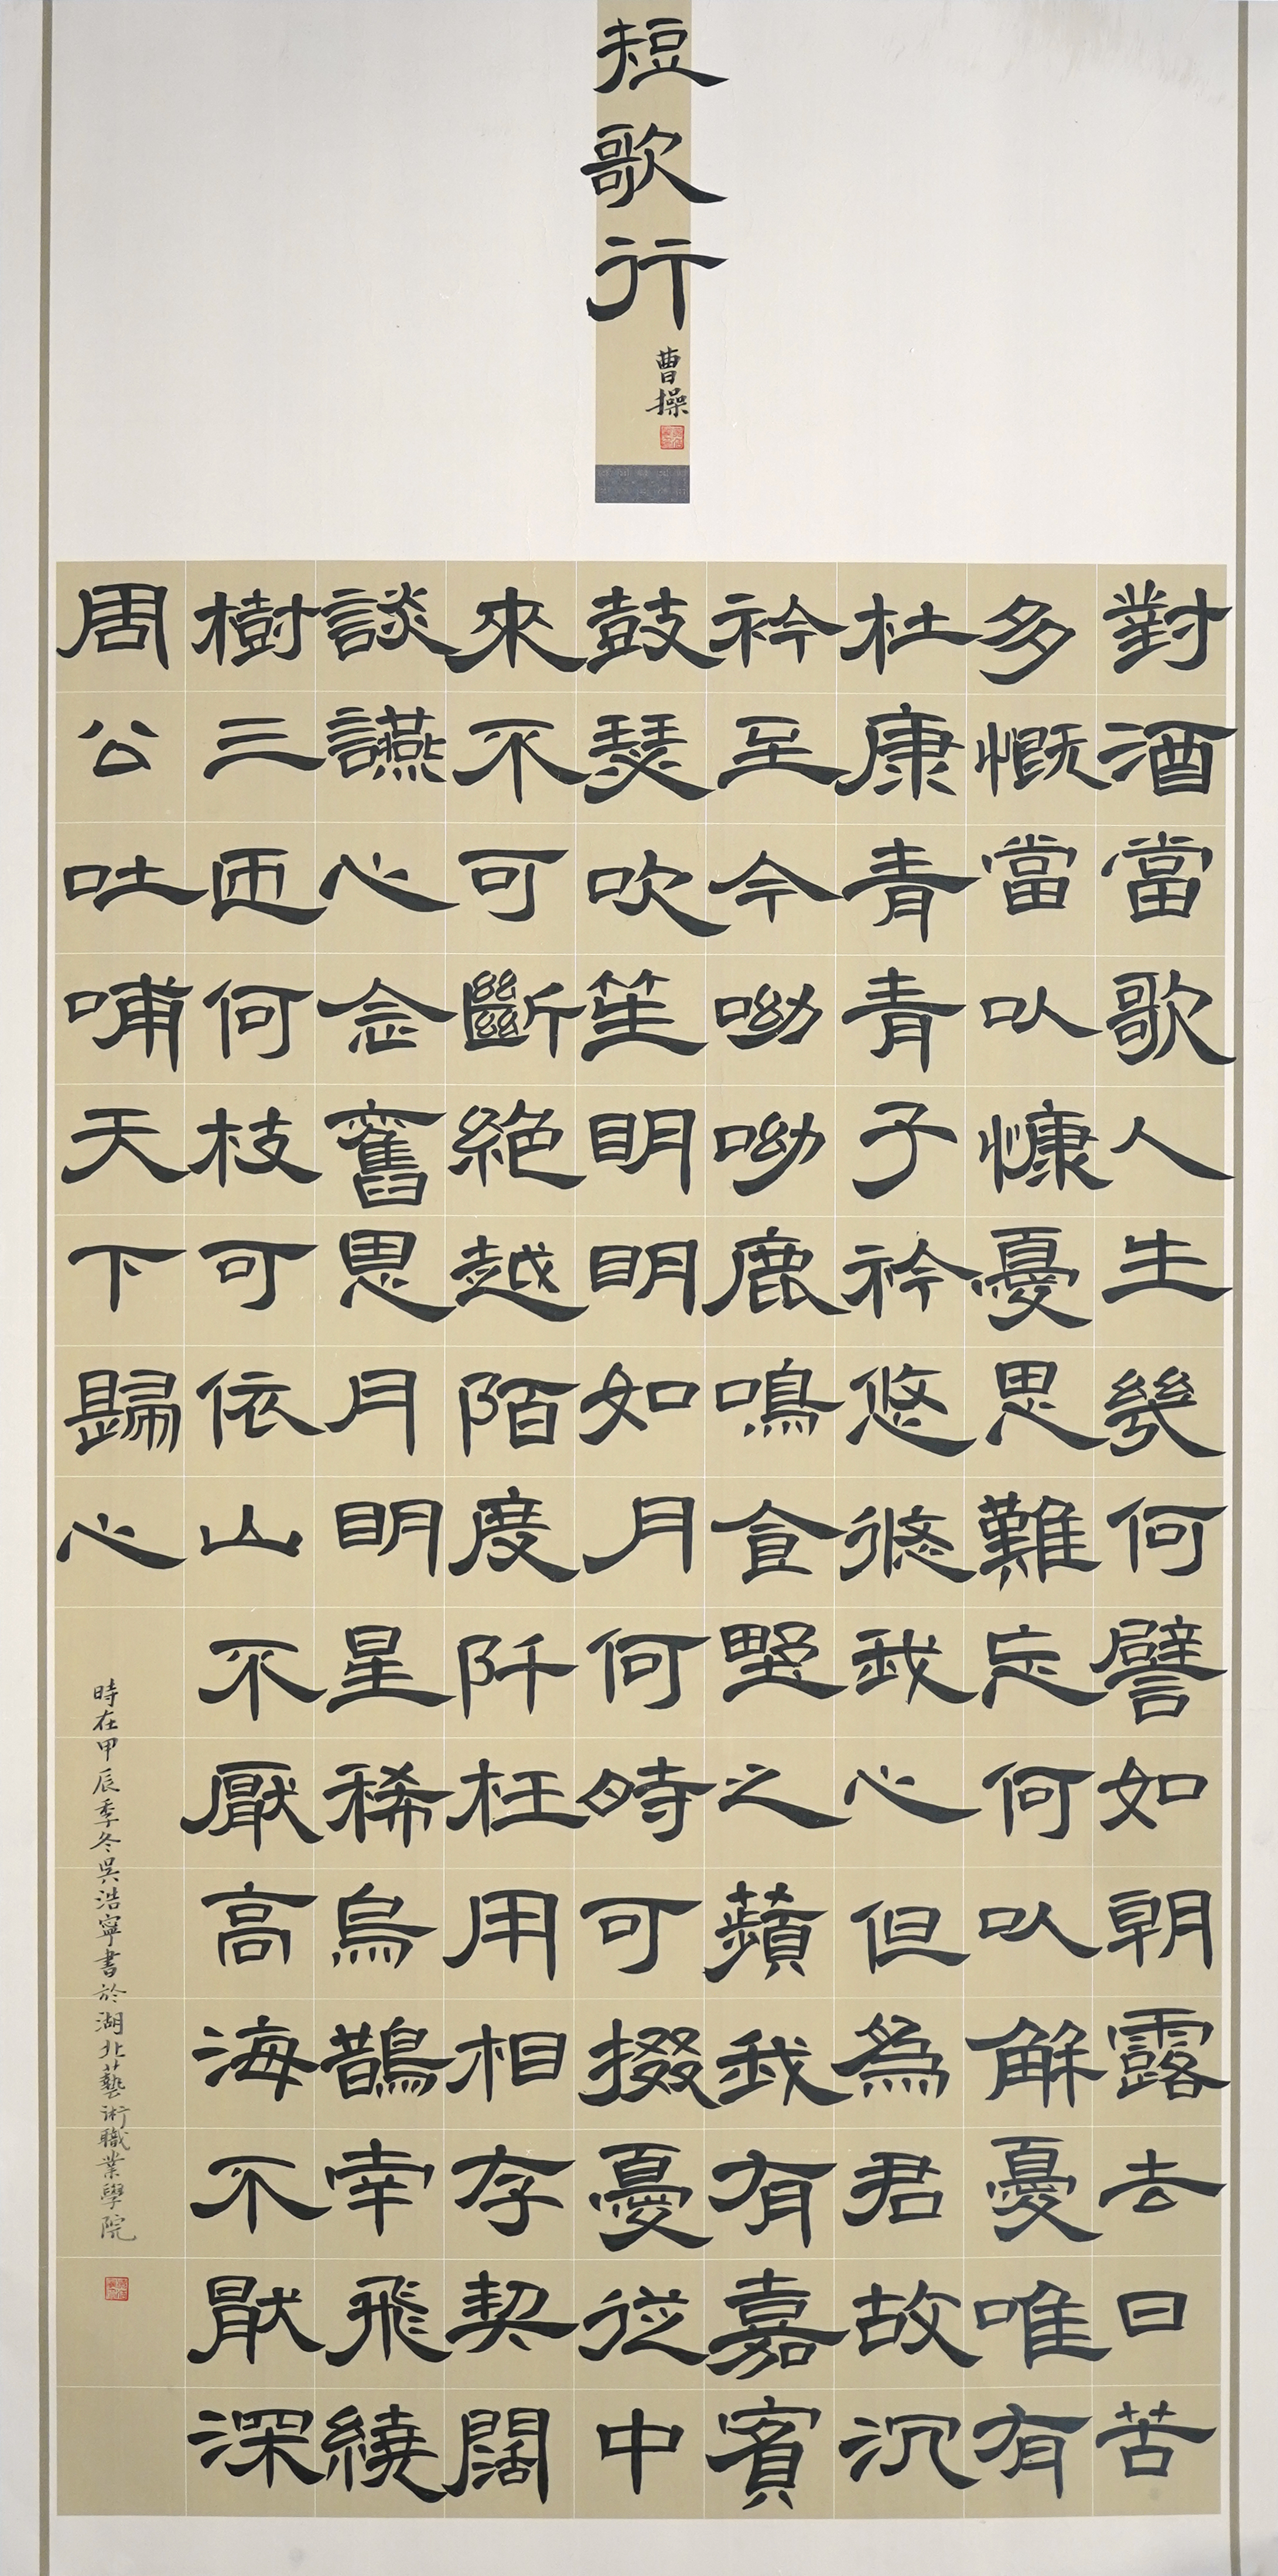 短歌行
曹操
對酒當歌人生幾何譬如朝露去日苦
多慨當以慷憂思難忘何以解憂唯有
杜康青青子衿悠悠我心但為君故沉
衿至今呦呦鹿鳴食野之蘋我有嘉賓
鼓瑟吹笙明明如月何時可掇憂從中
來不可斷絕越陌度阡枉用相存契闊
談讌心念舊恩月明星稀烏鵲南飛繞
樹三匝何枝可依山不厭高海不厭深
周公吐哺天下歸心
時在甲辰季冬吳浩寧書於湖北藝術職業學院